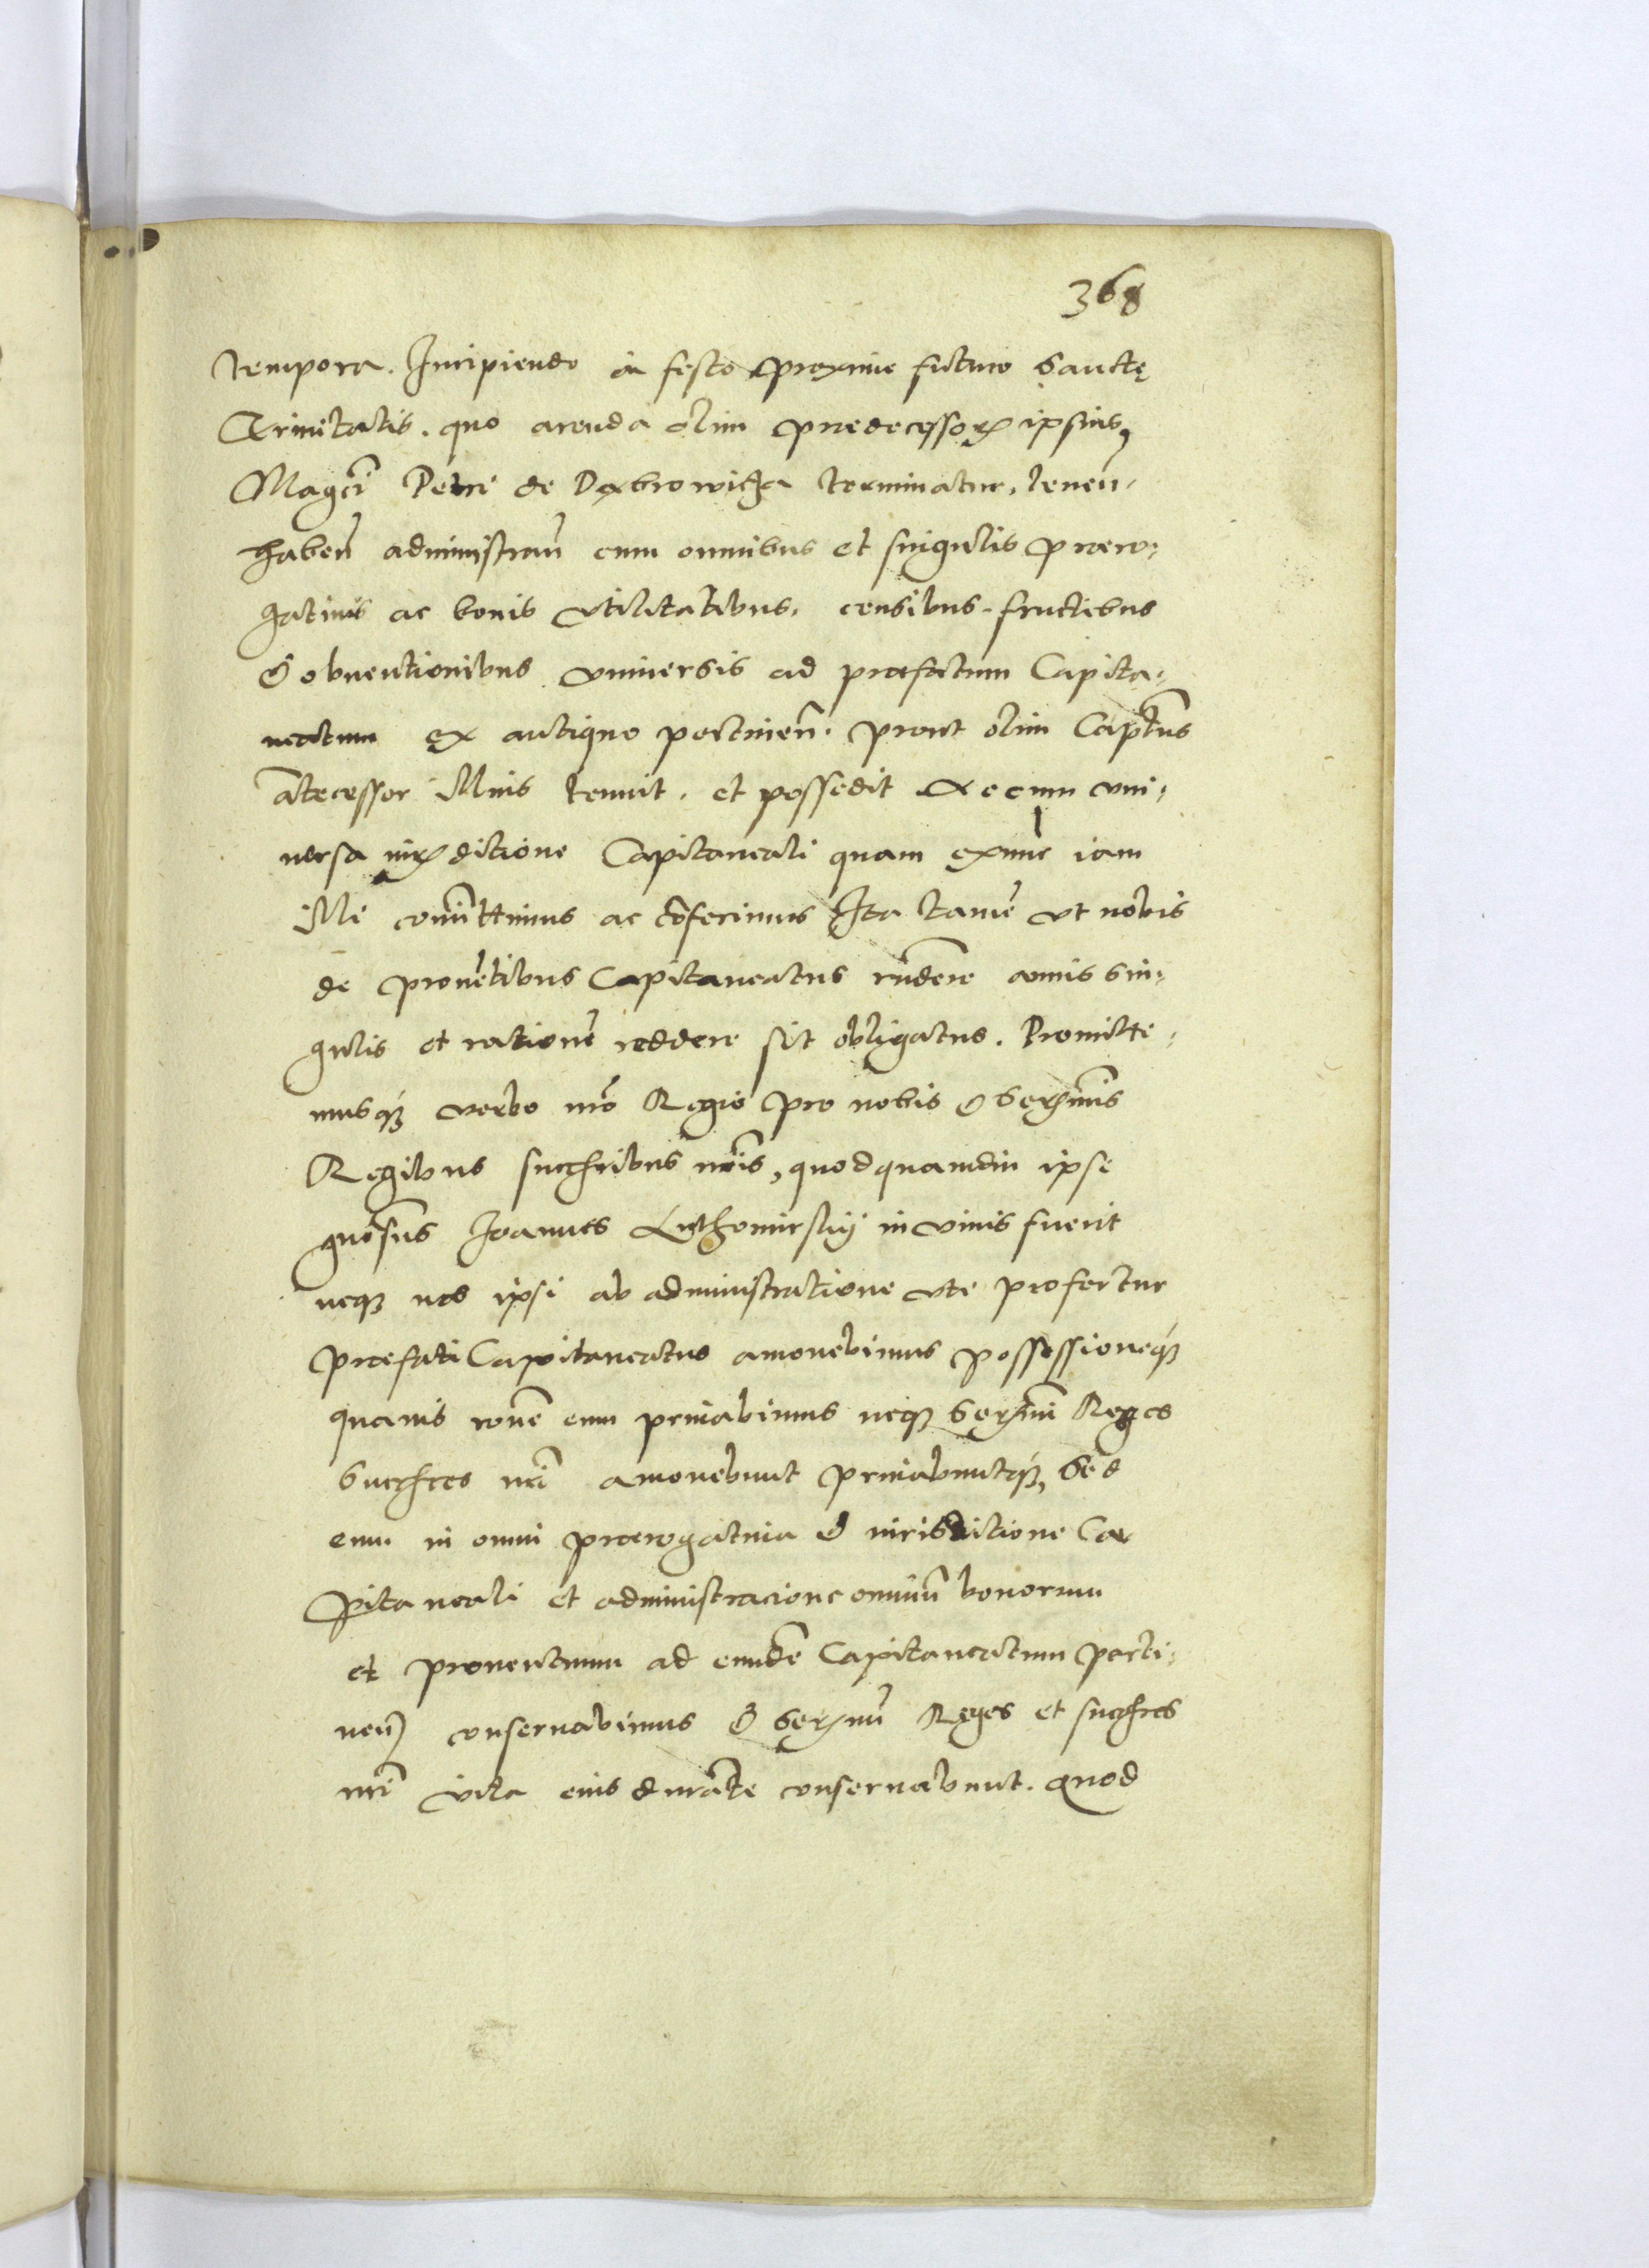 368
tempora. Incipiendo in festo proxime futuro Sanctę
Trinitatis. quo arenda olim predecessoꝝ ipsius,
Magci Petri de Dąbrowicza terminatur, tenen̄.
haben̄ administran̄ cum omnibus et singulis prero-
gatiuis ac bonis vtilitatibus, censibus fructibus
& obuentionibus vniuersis ad prefatum Capita-
neatum ex antiquo pertinen̄. prout olim Captūs
ātecessor illius tenuit. et possedit Ac cum vni-
uersa iurꝫditione Capitaneali quam ex nūc iam
illi com̄ittimus ac cōferimus Ita tamē vt nobis
de prouētibus Capitaneatus rn̄dere annis sin-
gulis et rationē reddere sit obligatus. Promitte-
musqꝫ verbo nrō Regio pro nobis & Serꝫmis
Regibus succrībus nrīs, quod quamdiu ipse
gnōsus Joannes Luthomirskÿ in viuis fuerit
neqꝫ nos ipsi ab administratione vte profertur
prefati Capitaneatus amouebimus possessioneqꝫ
quauis rōne eum priuabimus neqꝫ Serꝫmi Reges
Succrēs nrī amouebunt priuabuntqꝫ, Sed
eum in omni prerogatiua & iurisditione Ca
pitaneali et administracione omniū bonorum
et prouentuum ad eundē Capitaneatum perti-
nen̄ conseruabimus & Serꝫmi Reges et succrēs
nrī vita eius durāte conseruabunt. Quod